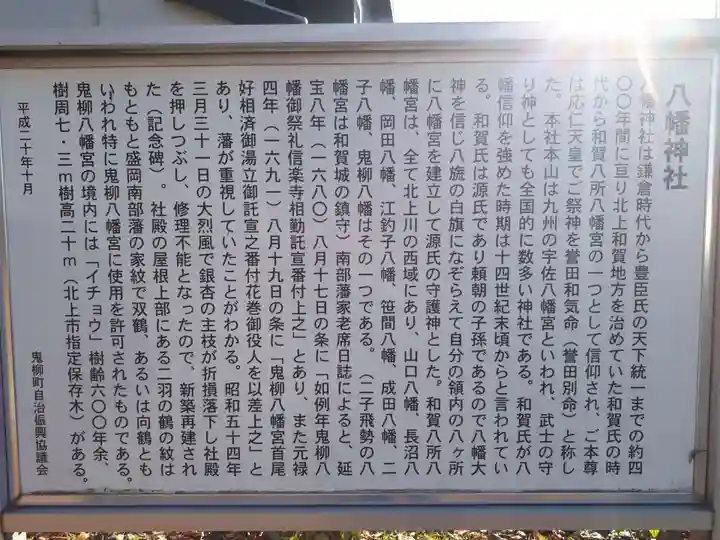 八幡神社
八幡神社は鎌倉時代から豊臣氏の天下統一までの約四
〇〇年間に亘り北上和賀地方を治めていた和賀氏の時
代から和賀八所八幡宮の一つとして信仰され、ご本尊
は応仁天皇でご祭神を誉田和気命（誉田別命）と称し
た。本社本山は九州の宇佐八幡宮といわれ、武士の守
り神としても全国的に数多い神社である。和賀氏が八
幡信仰を強めた時期は十四世紀末頃からと言われてい
る。和賀氏は源氏であり頼朝の子孫であるので八幡大
神を信じ八旒の白旗になぞらえて自分の領内の八ヶ所
に八幡宮を建立して源氏の守護神とした。和賀八所八
幡宮は、全て北上川の西域にあり、山口八幡、長沼八
幡、岡田八幡、江釣子八幡、笹間八幡、成田八幡、二
子八幡、鬼柳八幡はその一つである。（二子飛勢の八
幡宮は和賀城の鎮守）南部藩家老席日誌によると、延
宝八年（一六八〇）八月十七日の条に「如例年鬼柳八
幡御祭礼信楽寺相勤託宣番付上之」とあり、また元禄
四年（一六九一）八月十九日の条に「鬼柳八幡宮首尾
好相済御湯立御託宣之番付花巻御役人を以差上之」と
あり、藩が重視していたことがわかる。昭和五十四年
三月三十一日の大烈風で銀杏の主枝が折損落下し社殿
を押しつぶし、修理不能となったので、新築再建され
た（記念碑）。社殿の屋根上部にある二羽の鶴の紋は
もともと盛岡南部藩の家紋で双鶴、あるいは向鶴とも
いわれ特に鬼柳八幡宮に使用を許可されたものである。
鬼柳八幡宮の境内には「イチョウ」樹齢六〇〇年余、
樹周七・三ｍ樹高二十ｍ（北上市指定保存木）がある。
平成二十年十月
鬼柳町自治振興協議会